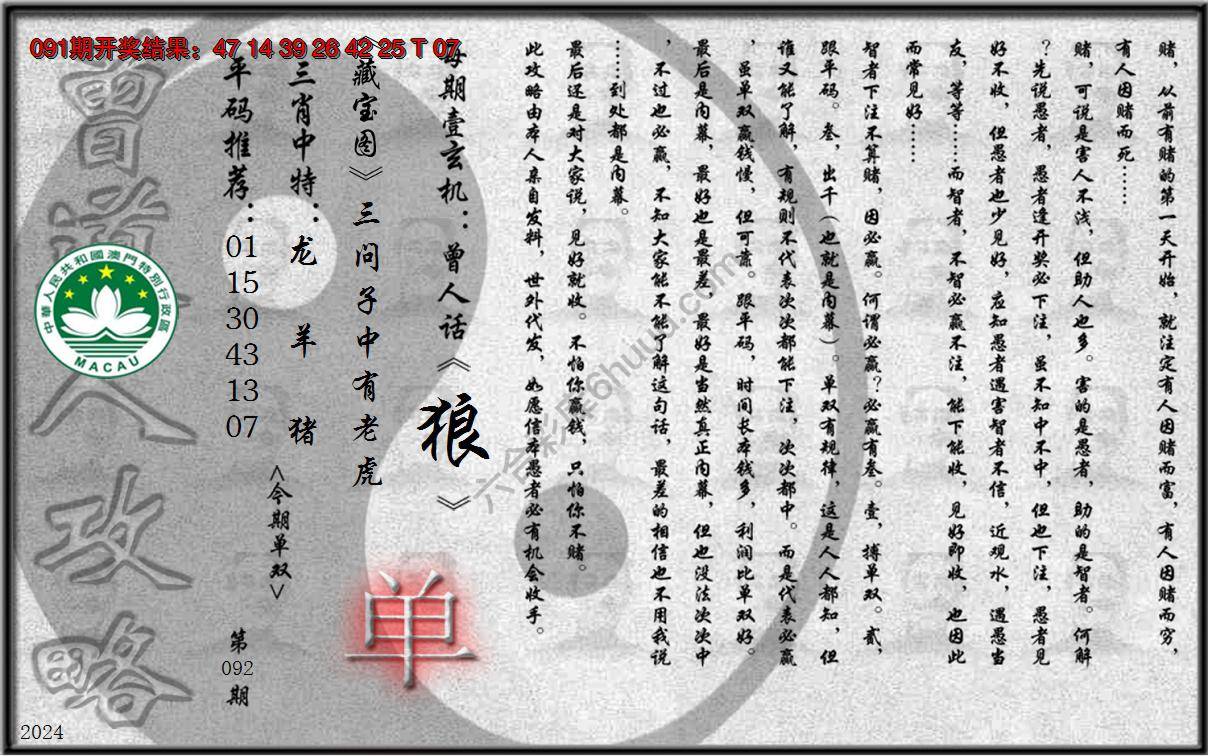 091期开奖结果：47 14 39 26 42 25 T 07
赌，从前有赌的第一天开始，就注定有人因赌而富，有人因赌而穷，
有人因赌而死……
赌，可说是害人不浅，但助人也多。害的是愚者，助的是智者。何解
？先说愚者，愚者逢开奖必下注，虽不知中不中，但也下注，愚者见
好不收，但愚者也少见好，应知愚者遇害智者不信，近观水，遇愚当
友，等等……而智者，不智必赢不注，能下能收，见好即收，也因此
而常见好……
智者下注不算赌，因必赢。何谓必赢？必赢有叁。壹，搏单双。贰，
跟平码。叁，出千（也就是内幕）。单双有规律，这是人人都知，但
谁又能了解，有规则不代表次次都能下注，次次都中。而是代表必赢
，虽单双赢钱慢，但可靠。跟平码，时间长本钱多，利润比单双好。
最后是内幕，最好也是最差，最好是当然真正内幕，但也没法次次中
，不过也必赢，不知大家能不能了解这句话，最差的相信也不用我说
……到处都是内幕。
最后还是对大家说，见好就收。不怕你赢钱，只怕你不赌。
此攻略由本人亲自发料，世外代发，如愿信本愚者必有机会收手。
每期壹玄机：曾人话《狼》
《藏宝图》三问子中有老虎
单
三肖中特：龙 羊 猪
<今期单双>
平码推荐：01 15 30 43 13 07
第092期
曾道人攻略
中華人民共和國澳門特別行政區
MACAU
六合彩库6huuu.com
2024